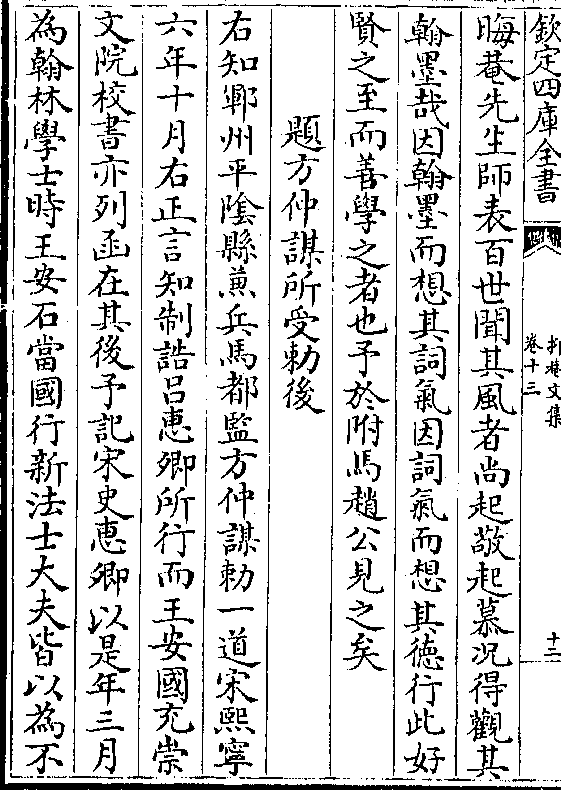 欽定四庫全書
卷十三
文集
十二
晦菴先生師表百世聞其風者尚起敬起慕况得觀其
翰墨哉因翰墨而想其詞氣因詞氣而想其德行此好
賢之至而善學之者也予於駙馬趙公見之矣
題方仲謀所受勅後
右知鄆州平陰縣兼兵馬都監方仲謀勅一道宋熙寧
六年十月右正言知制誥呂惠卿所行而王安國充崇
文院校書亦列函在其後予記宋史惠卿以是年三月
為翰林學士時王安石當國行新法士大夫皆以為不